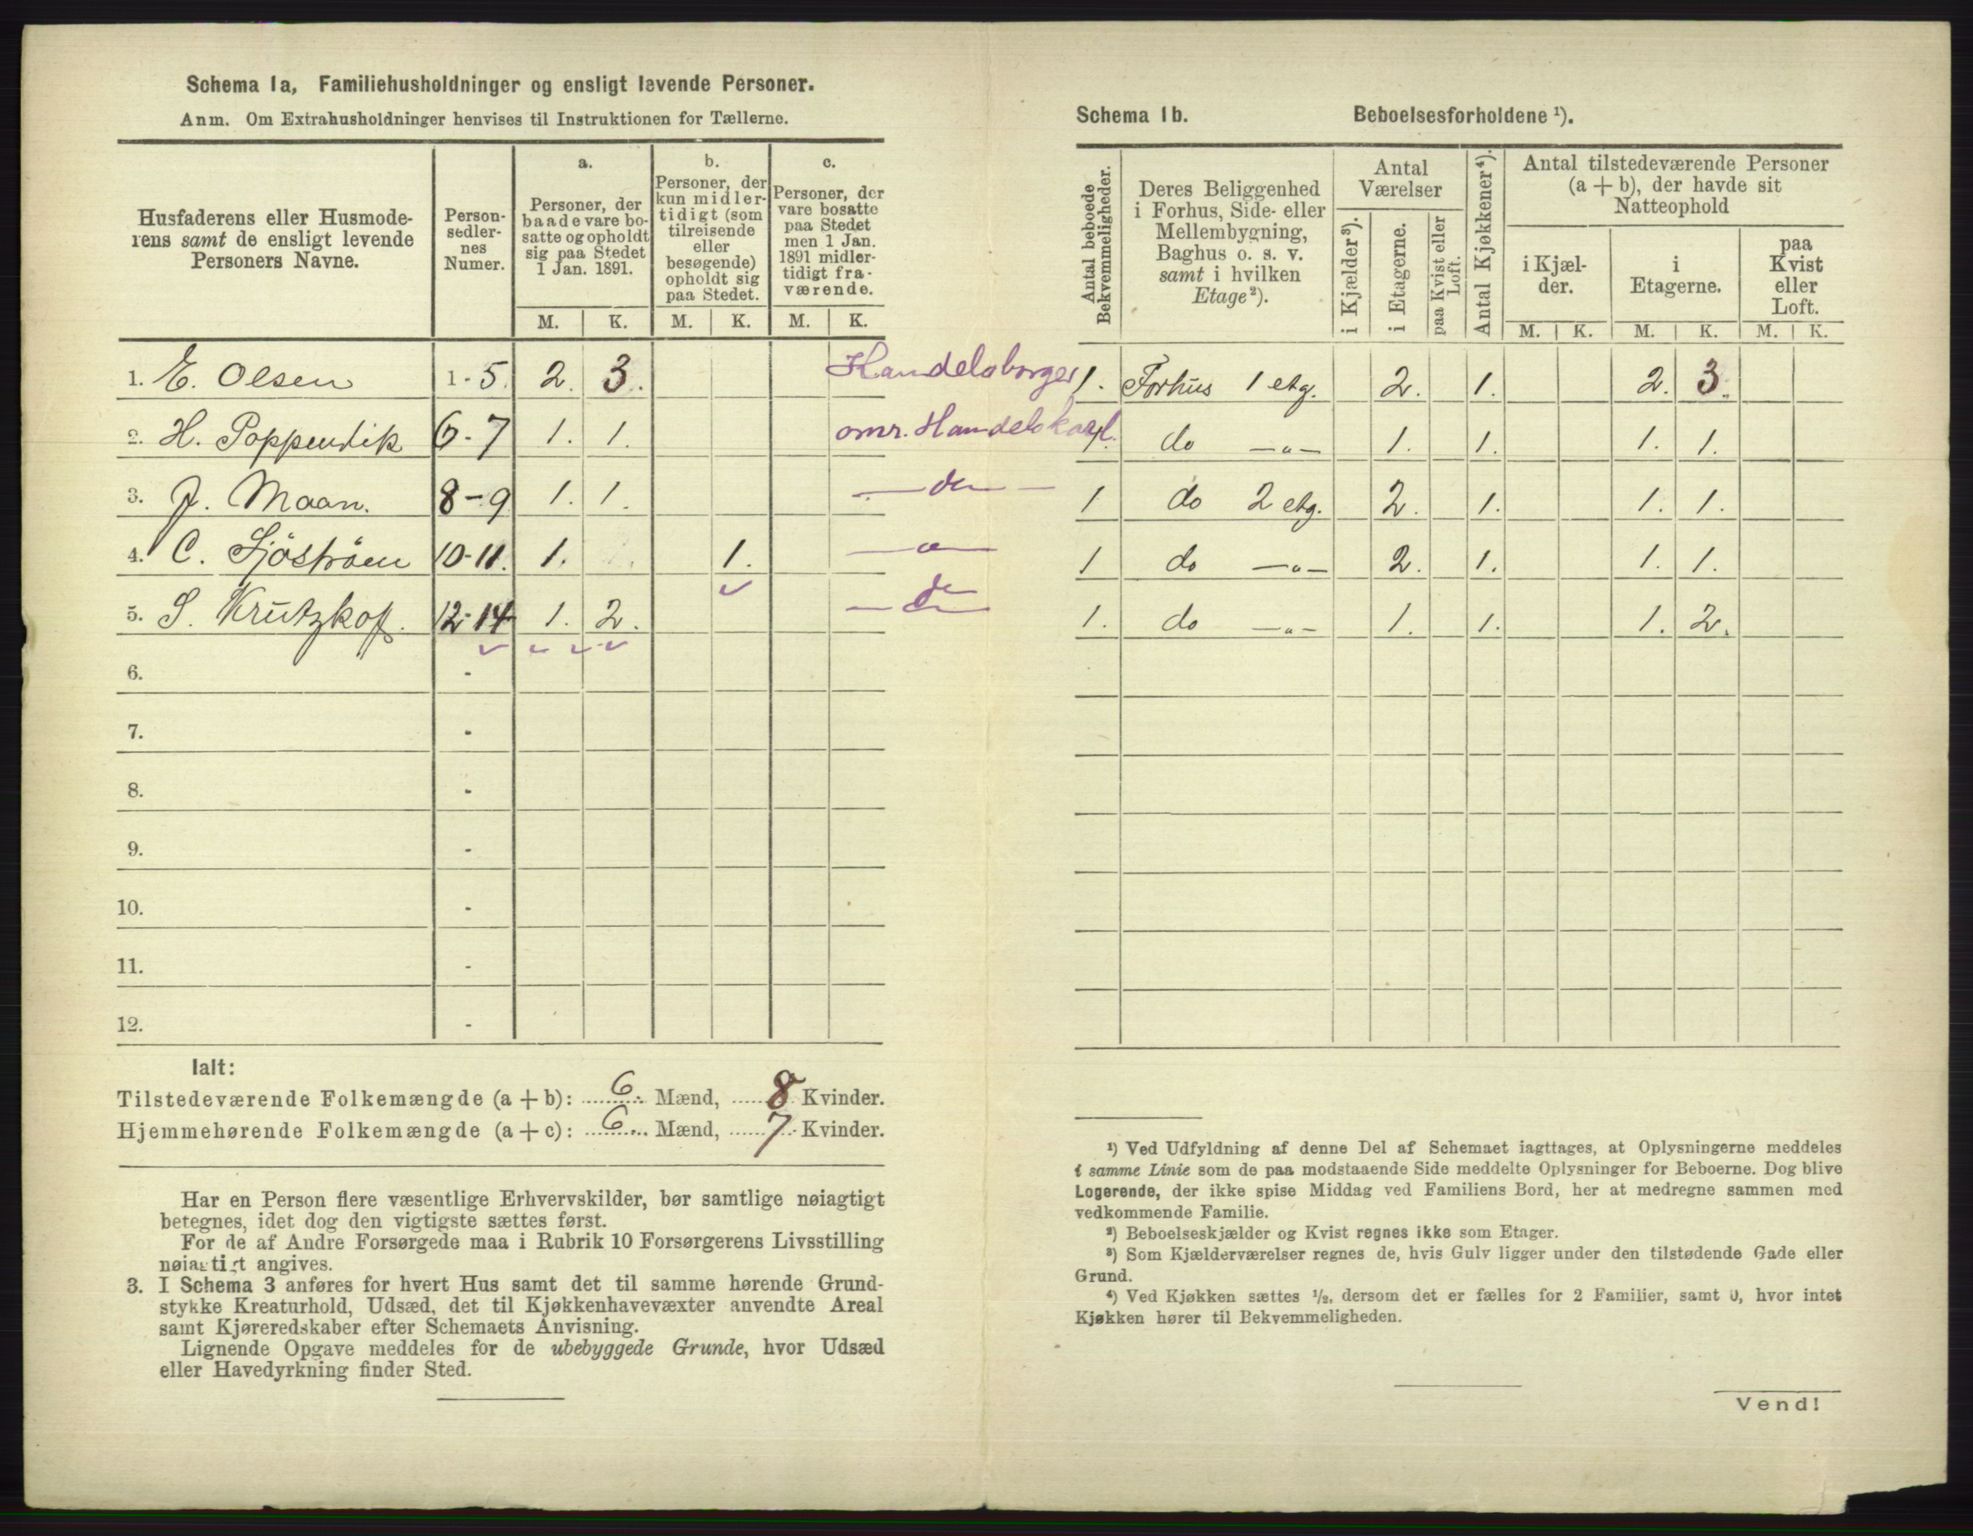 Schema 1a, Familiehusholdninger og ensligt levende Personer.
Anm. Om Extrahusholdninger henvises til Instruktionen for Tællerne.
Husfaderens eller Husmode-
rens samt de ensligt levende
Personers Navne.
Person-
sedler-
nes
Numer.
a.
Personer, der
baade vare bo-
satte og opholdt
sig paa Stedet
1 Jan. 1891.
b.
Personer, der
kun midler-
tidigt (som
tilreisende
eller
besøgende)
opholdt sig
paa Stedet.
c.
Personer, der
vare bosatte
paa Stedet
men 1 Jan.
1891 midler-
tidigt fra-
værende.
M. K. M. K. M. K.
1. E. Olsen 1-5. 2. 3. Handelsborger
2. H. Poppendik 6-7 1. 1. omr. Handelskarl.
3. J. Maan. 8-9 1. 1. — do —
4. C. Sjöström 10-11. 1. 1.
5. S. Krutzkof. 12-14 1. 2. do
6. -
7. -
8. -
9. -
10. -
11. -
12. -
Ialt:
Tilstedeværende Folkemængde (a + b): 6. Mænd, 8 Kvinder.
Hjemmehørende Folkemængde (a + c): 6. Mænd, 7 Kvinder.
Har en Person flere væsentlige Erhvervskilder, bør samtlige nøiagtigt
betegnes, idet dog den vigtigste sættes først.
For de af Andre Forsørgede maa i Rubrik 10 Forsørgerens Livsstilling
nøiagtigt angives.
3. I Schema 3 anføres for hvert Hus samt det til samme hørende Grund-
stykke Kreaturhold, Udsæd, det til Kjøkkenhavevæxter anvendte Areal
samt Kjøreredskaber efter Schemaets Anvisning.
Lignende Opgave meddeles for de ubebyggede Grunde, hvor Udsæd
eller Havedyrkning finder Sted.
Schema 1b. Beboelsesforholdene ¹).
Antal beboede
Bekvemmeligheder.
Deres Beliggenhed
i Forhus, Side- eller
Mellembygning,
Baghus o. s. v.
samt i hvilken
Etage ²).
Antal
Værelser
i Kjælder ³).
i Etagerne.
paa Kvist eller
Loft.
Antal Kjøkkener ⁴).
Antal tilstedeværende Personer
(a + b), der havde sit
Natteophold
i Kjæl-
der.
i
Etagerne.
paa
Kvist
eller
Loft.
M. K. M. K. M. K.
1. Forhus 1 etg. 2. 1. 2. 3.
1. do —"— 1. 1. 1. 1.
1 do 2 etg. 2. 1. 1. 1.
1 do —"— 2. 1. 1. 1.
1. do —"— 1. 1. 1. 2.
¹) Ved Udfyldning af denne Del af Schemaet iagttages, at Oplysningerne meddeles
i samme Linie som de paa modstaaende Side meddelte Oplysninger for Beboerne. Dog blive
Logerende, der ikke spise Middag ved Familiens Bord, her at medregne sammen med
vedkommende Familie.
²) Beboelseskjælder og Kvist regnes ikke som Etager.
³) Som Kjælderværelser regnes de, hvis Gulv ligger under den tilstødende Gade eller
Grund.
⁴) Ved Kjøkken sættes ½, dersom det er fælles for 2 Familier, samt 0, hvor intet
Kjøkken hører til Bekvemmeligheden.
Vend!